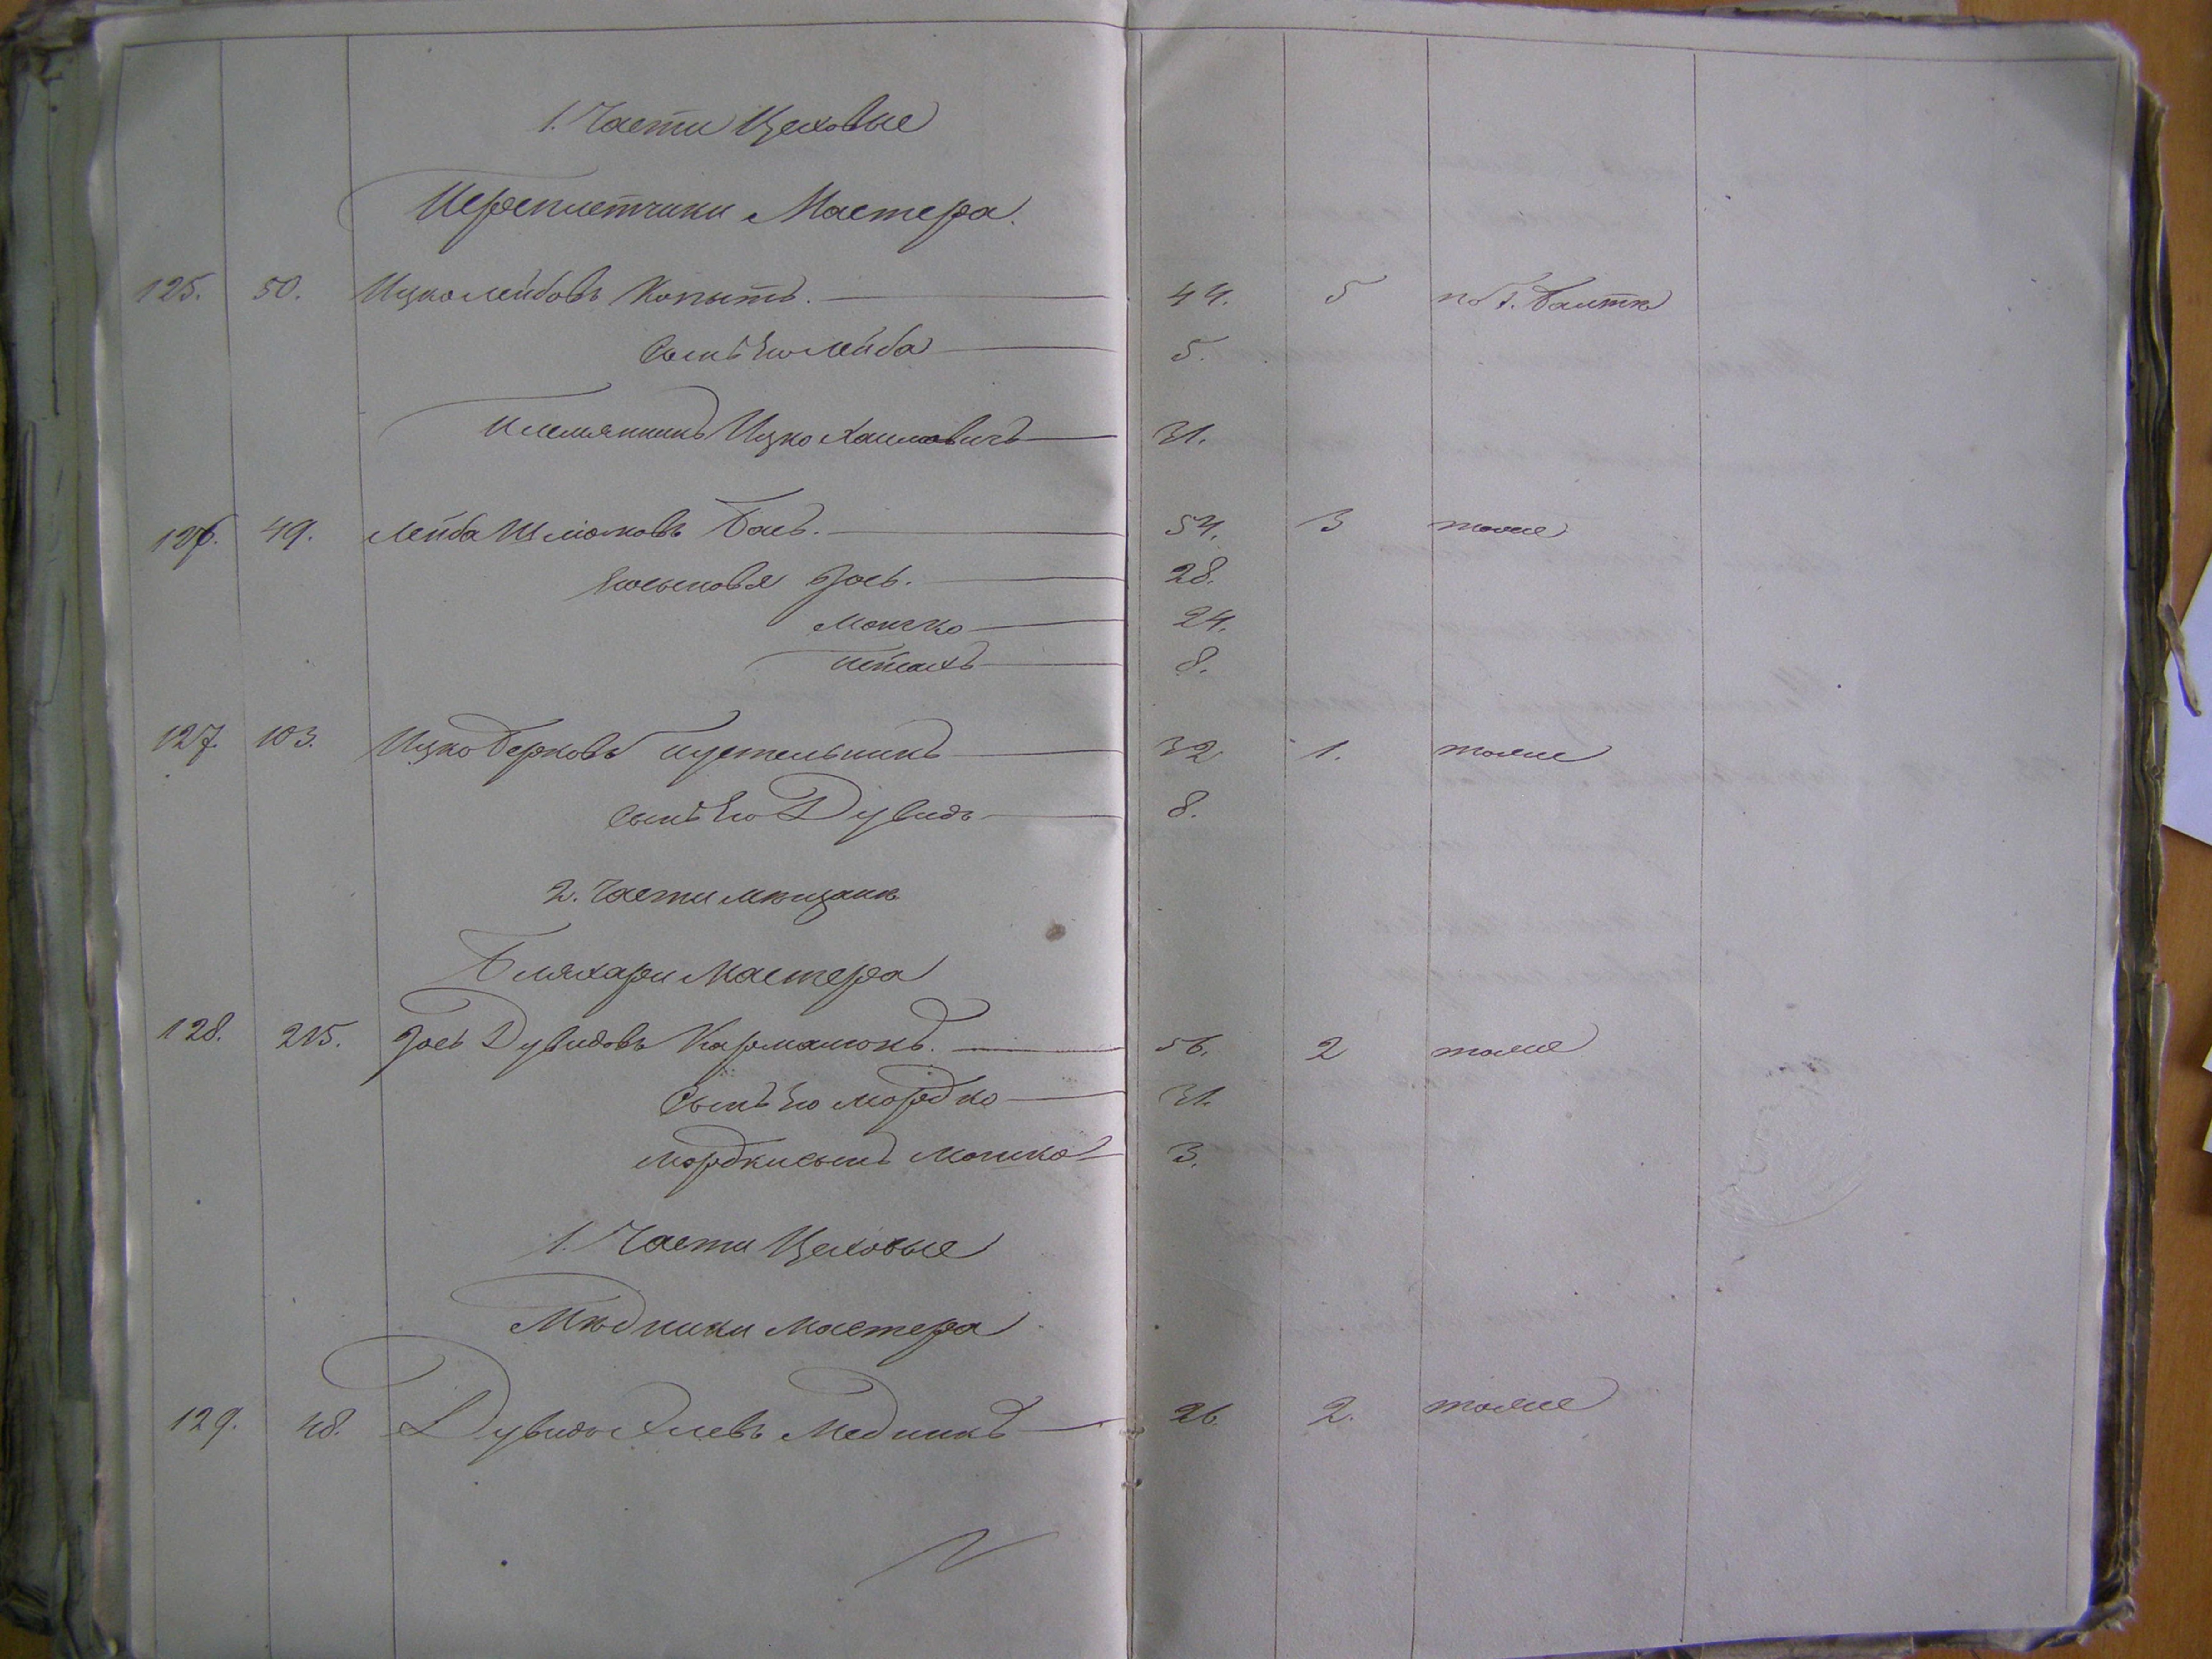 1. Части Цеховые
Переплетчики Мастера.
125. 50. Ицко Лейбовъ Копытъ. 44. 5 по г. Балтѣ
Сынъ Его Лейба 5.
Племянникъ Ицко Хаимовичъ 31.
126. 49. Лейба Шмюловъ Басъ. 54. 3 тоже
Его сыновья Іось. 28.
Мошко 24.
Пейсахъ 8.
127. 103. Ицко Берковъ Пустельникъ 32 1. тоже
сынъ Его Дувидъ 8.
2. Части мѣщанѣ
Бляхари Мастера
128. 215. Іось Дувидовъ Кармалюкъ. 56. 2 тоже
Сынъ Его Мордко 31.
Мордки сынъ Мошко 3.
1. Части Цеховые
Мѣдники Мастера
129. 48. Дувидъ Медникъ 26. 2. тоже